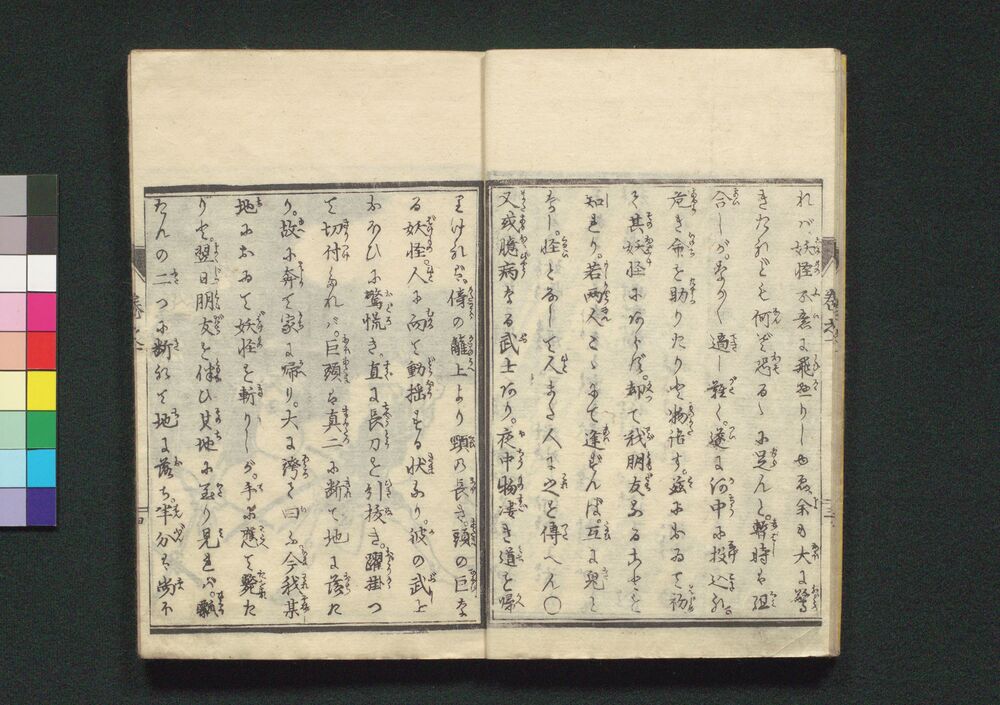 れバ、妖怪不意に飛懸りしゆゑ、余も大に驚
きたれども何ぞ恐るゝに足んと。暫時も組
合しが。なか〳〵適し難く。遂に河中に投込れ。
危き命を助りたりと物語す。茲におゐて初
て其妖怪にあらず。却て我朋友なることを
知れり。若両人こゝにて逢ずんば。互に児と
なし。怪となして人また人に之を傳へん〇
又或臆病なる武士あり。夜中物凄き道を帰
りけれバ。傍の籬上より頸の長き頭の巨な
る妖怪人に向て動揺する状あり。彼の武士
おほひに驚慌き。直に長刀を引抜き。躍掛つ
て切付たれバ。巨頭ハ真二に断て地に落た
り。故に奔て家に帰り。大に誇て曰ふ今我某
地において妖怪を斬りしが。手に應て斃た
りと。翌日朋友を伴ひ其地に至り見れバ。瓢
たんの二つに断れて地に落ち。半分ハ尚下